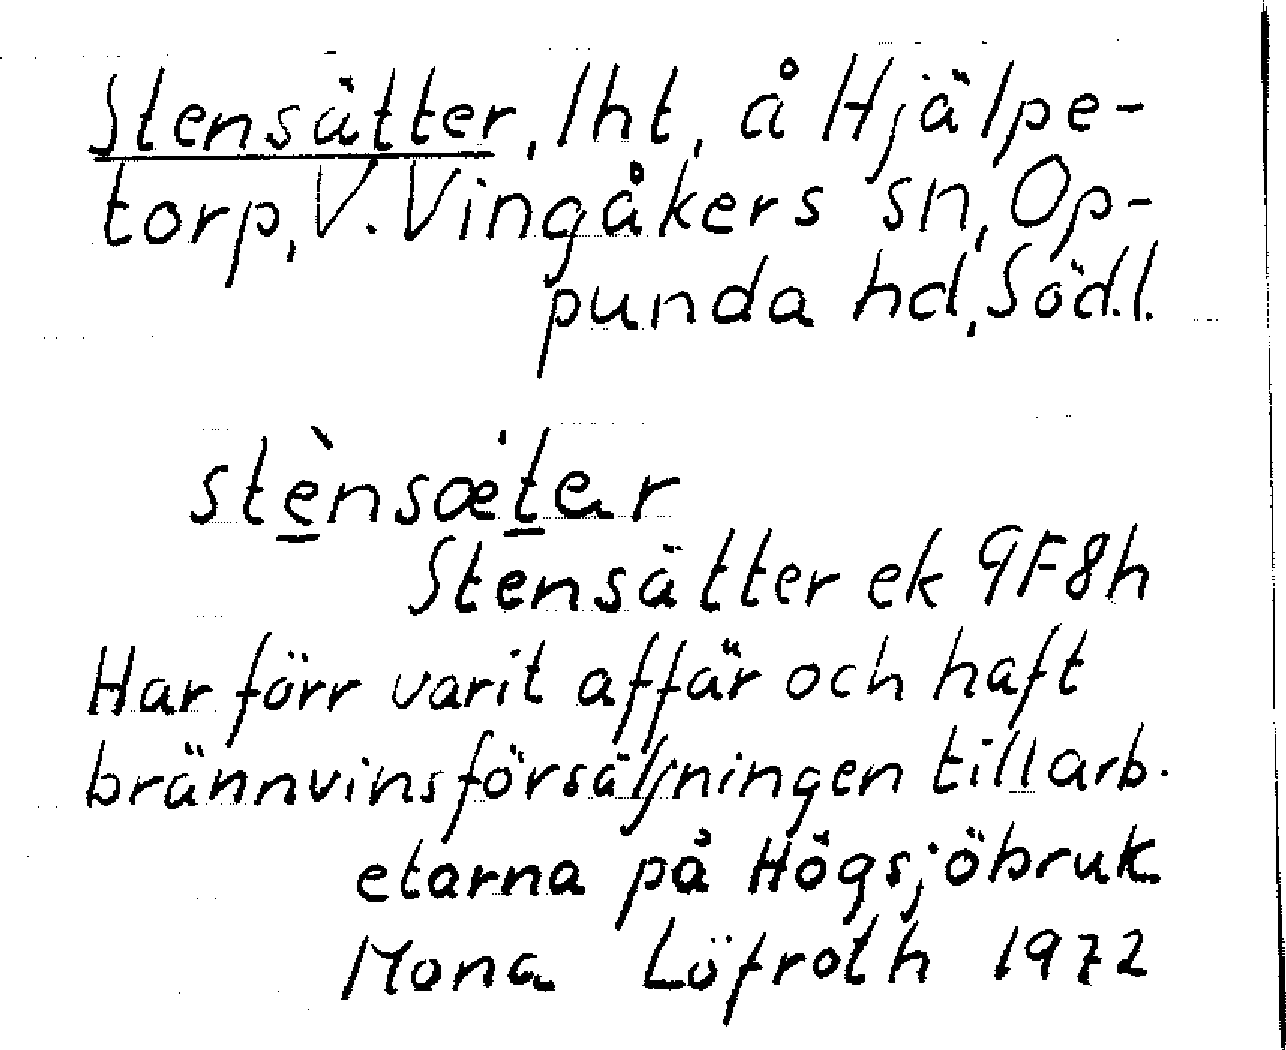 Stensätter, lht, å Hjälpe-
torp, V. Vingåkers sn, Op-
punda hd, Södl.
stènsætar
Stensätter ek 9F8h
Har förr varit affär och haft
brännvinsförsäljningen till arb.
etarna på Högsjöbruk
Mona Löfroth 1972